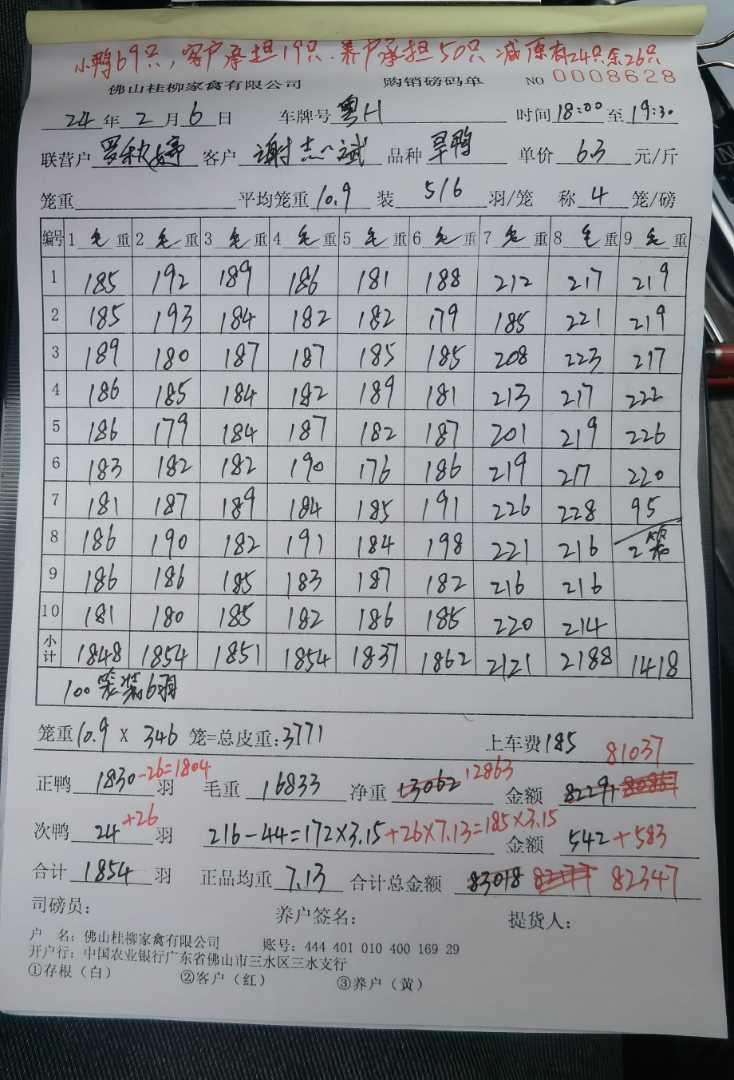 小鸭69只，客户承担19只.养户承担50只 减原有24只余26只
佛山桂柳家禽有限公司 购销磅码单 NO 0008628
24 年 2 月 6 日 车牌号 粤H 时间 18:00 至 19:30
联营户 罗秋婷 客户 谢志斌 品种 旱鸭 单价 6.3 元/斤
笼重 平均笼重 10.9 装 5/6 羽/笼 称 4 笼/磅
编号 1 毛 重 2 毛 重 3 毛 重 4 毛 重 5 毛 重 6 毛 重 7 毛 重 8 毛 重 9 毛 重
1 185 192 189 186 181 188 212 217 219
2 185 193 184 182 182 179 185 221 219
3 189 180 187 187 185 185 208 223 217
4 186 185 184 182 189 181 213 217 222
5 186 179 184 187 182 187 201 219 226
6 183 182 182 190 176 186 219 217 220
7 181 187 189 184 185 191 226 228 95
8 186 190 182 191 184 198 221 216 2笼
9 186 186 185 183 187 182 216 216
10 181 180 185 182 186 185 220 214
小计 1848 1854 1851 1854 1837 1862 2121 2188 1418
100笼装6羽
笼重 10.9 X 346 笼=总皮重:3771 上车费 185 81037
正鸭 1830 -26=1804 羽 毛重 16833 净重 13062 12863 金额 82291
次鸭 24 +26 羽 216-44=172×3.15 +26×7.13=185×3.15 金额 542 +583
合计 1854 羽 正品均重 7.13 合计总金额 83018 82347
司磅员： 养户签名： 提货人：
户 名：佛山桂柳家禽有限公司 账号：444 401 010 400 169 29
开户行：中国农业银行广东省佛山市三水区三水支行
①存根（白） ②客户（红） ③养户（黄）